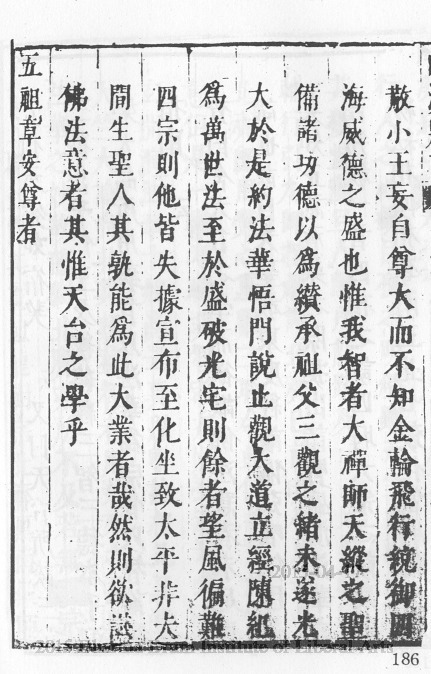 散小王妄自尊大而不知金輪飛行統御四
海威德之盛也惟我智者大禪師天縱之聖
備諸功德以爲纘承祖父三觀之緒未遂光
大於是約法華悟門說止觀大道立經陳紀
爲萬世法至於盛破光宅則餘者望風徧難
四宗則他皆失據宣布至化坐致太平非夫
間生聖人其孰能爲此大業者哉然則欲議
佛法意者其惟天台之學乎
五祖章安尊者
186